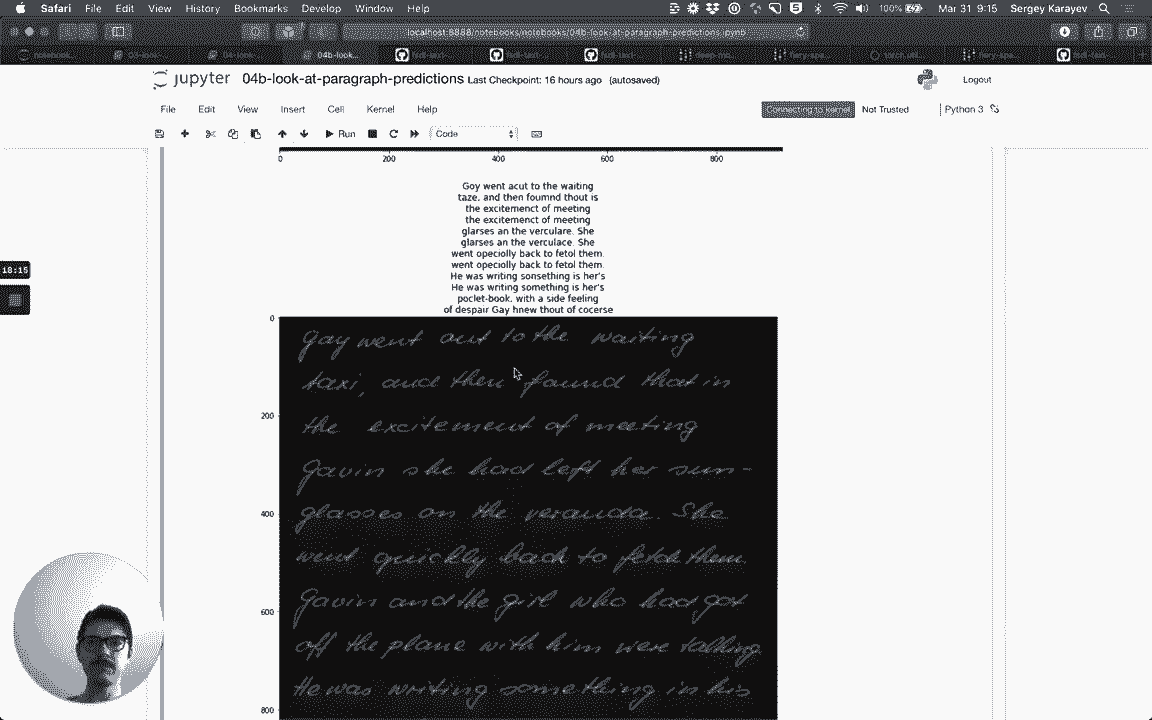 Safari File Edit View History Bookmarks Develop Window Help 100% Mar 31 9:15 Sergey Karayev
localhost:8888/notebooks/notebooks/04b-look-at-paragraph-predictions.ipynb
04b-look...
jupyter 04b-look-at-paragraph-predictions Last Checkpoint: 16 hours ago (autosaved) Logout
File Edit View Insert Cell Kernel Help Connecting to kernel Not Trusted Python 3
Run Code
0 200 400 600 800
Goy went acut to the waiting
taze, and then foumnd thout is
the excitemenct of meeting
the excitemenct of meeting
glarses an the verculare. She
glarses an the verculace. She
went opeciolly back to fetol them.
went opeciolly back to fetol them.
He was writing sonsething is her's
He was writing something is her's
poclet-book, with a side feeling
of despair Gay hnew thout of cocerse
18:15
0
gay went out to the waiting
taxi, and then found that in
200
the excitement of meeting
Gavin she had left her sun-
400
glasses on the veranda. She
went quickly back to fetch them.
600
Gavin and the girl who had got
off the plane with him were talking.
He was writing something in his
800